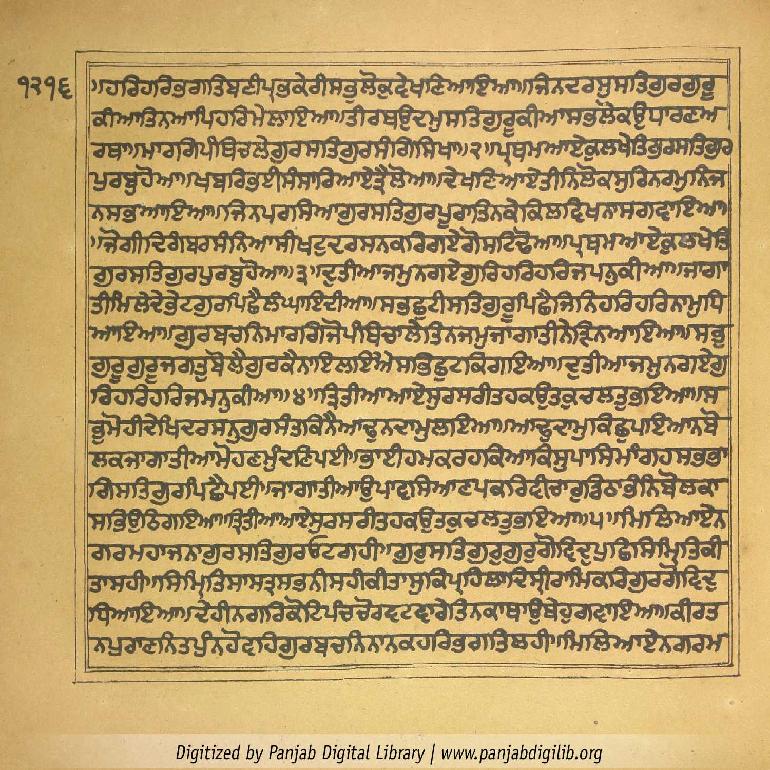 ੧੨੧੬
॥ਹਰਿਹਰਿਭਗਤਿਬਣੀਪ੍ਰਭਕੇਰੀਸਭੁਲੋਕੁਵੇਖਣਿਆਇਆ॥ਜਿਨਦਰਸੁਸਤਿਗੁਰਗੁਰੂ
ਕੀਆਤਿਨਆਪਿਹਰਿਮੇਲਾਇਆ॥ਤੀਰਥਉਦਮੁਸਤਿਗੁਰੂਕੀਆਸਭਲੋਕਉਧਾਰਣਅ
ਰਥਾ॥ਮਾਰਗਿਪੰਥਿਚਲੇਗੁਰਸਤਿਗੁਰਸੰਗਿਸਿਖਾ॥੨॥ਪ੍ਰਥਮਆਏਕੁਲਖੇਤਿਗੁਰਸਤਿਗੁਰ
ਪੁਰਬੁਹੋਆ॥ਖਬਰਿਭਈਸੰਸਾਰਿਆਏਤ੍ਰੈਲੋਆ॥ਦੇਖਣਿਆਏਤੀਨਿਲੋਕਸੁਰਿਨਰਮੁਨਿਜ
ਨਸਭਆਇਆ॥ਜਿਨਪਰਸਿਆਗੁਰਸਤਿਗੁਰਪੂਰਾਤਿਨਕੇਕਿਲਵਿਖਨਾਸਗਵਾਇਆ
॥ਜੋਗੀਦਿਗੰਬਰਸੰਨਿਆਸੀਖਟੁਦਰਸਨਕਰਿਗਏਗੋਸਟਿਢੋਆ॥ਪ੍ਰਥਮਆਏਕੁਲਖੇਤਿ
ਗੁਰਸਤਿਗੁਰਪੁਰਬੁਹੋਆ॥੩॥ਦੁਤੀਆਜਮੁਨਗਏਗੁਰਿਹਰਿਹਰਿਜਪਨੁਕੀਆ॥ਜਾਗਾ
ਤੀਮਿਲੇਦੇਭੇਟਗੁਰਪਿਛੈਲੰਘਾਇਦੀਆ॥ਸਭਛੁਟੀਸਤਿਗੁਰੂਪਿਛੈਜਿਨਿਹਰਿਹਰਿਨਾਮੁਧਿ
ਆਇਆ॥ਗੁਰਬਚਨਿਮਾਰਗਿਜੋਪੰਥਿਚਾਲੇਤਿਨਜਮੁਜਾਗਾਤੀਨੇੜਿਨਆਇਆ॥ਸਭੁ
ਗੁਰੂਗੁਰੂਜਗਤੁਬੋਲੈਗੁਰਕੈਨਾਇਲਇਐਸਭਿਛੁਟਕਿਗਇਆ॥ਦੁਤੀਆਜਮੁਨਗਏਗੁ
ਰਿਹਰਿਹਰਿਜਮਨੁਕੀਆ॥੪॥ਤ੍ਰਿਤੀਆਆਏਸੁਰਸਰੀਤਹਕਉਤਕੁਚਲਤੁਭਇਆ॥ਸ
ਭਮੋਹੀਦੇਖਿਦਰਸਨੁਗੁਰਸੰਤਕਿਨੈਆਢੁਨਦਾਮੁਲਇਆ॥ਆਢੁਦਾਮੁਕਿਛੁਪਇਆਨਬੋ
ਲਕਜਾਗਾਤੀਆਮੋਹਣਮੁੰਦਣਿਪਈ॥ਭਾਈਹਮਕਰਹਕਿਆਕਿਸੁਪਾਸਿਮਾਂਗਹਸਭਭਾ
ਗਿਸਤਿਗੁਰਪਿਛੈਪਈ॥ਜਾਗਾਤੀਆਉਪਾਵਸਿਆਣਪਕਰਿਵੀਚਾਰੁਡਿਠਾਭੰਨਿਬੋਲਕਾ
ਸਭਿਉਠਿਗਇਆ॥ਤ੍ਰਿਤੀਆਆਏਸੁਰਸਰੀਤਹਕਉਤਕੁਚਲਤੁਭਇਆ॥੫॥ਮਿਲਿਆਏਨ
ਗਰਮਹਾਜਨਾਗੁਰਸਤਿਗੁਰਓਟਗਹੀ॥ਗੁਰੁਸਤਿਗੁਰੁਗੁਰੁਗੋਵਿਦੁਪੁਛਿਸਿਮ੍ਰਿਤਿਕੀ
ਤਾਸਹੀ॥ਸਿਮ੍ਰਿਤਿਸਾਸਤ੍ਰਸਭਨੀਸਹੀਕੀਤਾਸੁਕਿਪ੍ਰਹਿਲਾਦਿਸ੍ਰੀਰਾਮਿਕਰਿਗੁਰਗੋਵਿਦੁ
ਧਿਆਇਆ॥ਦੇਹੀਨਗਰਿਕੋਟਿਪੰਚਚੋਰਵਟਵਾਰੇਤਿਨਕਾਥਾਉਥੇਹੁਗਵਾਇਆ॥ਕੀਰਤ
ਨਪੁਰਾਣਨਿਤਪੁੰਨਹੋਵਹਿਗੁਰਬਚਨਿਨਾਨਕਹਰਿਭਗਤਿਲਹੀ॥ਮਿਲਿਆਏਨਗਰਮ
Digitized by Panjab Digital Library | www.panjabdigilib.org